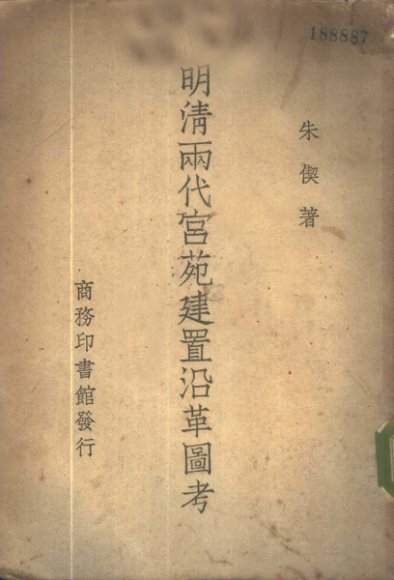 188887
朱偰著
明清兩代宮苑建置沿革圖考
商務印書館發行